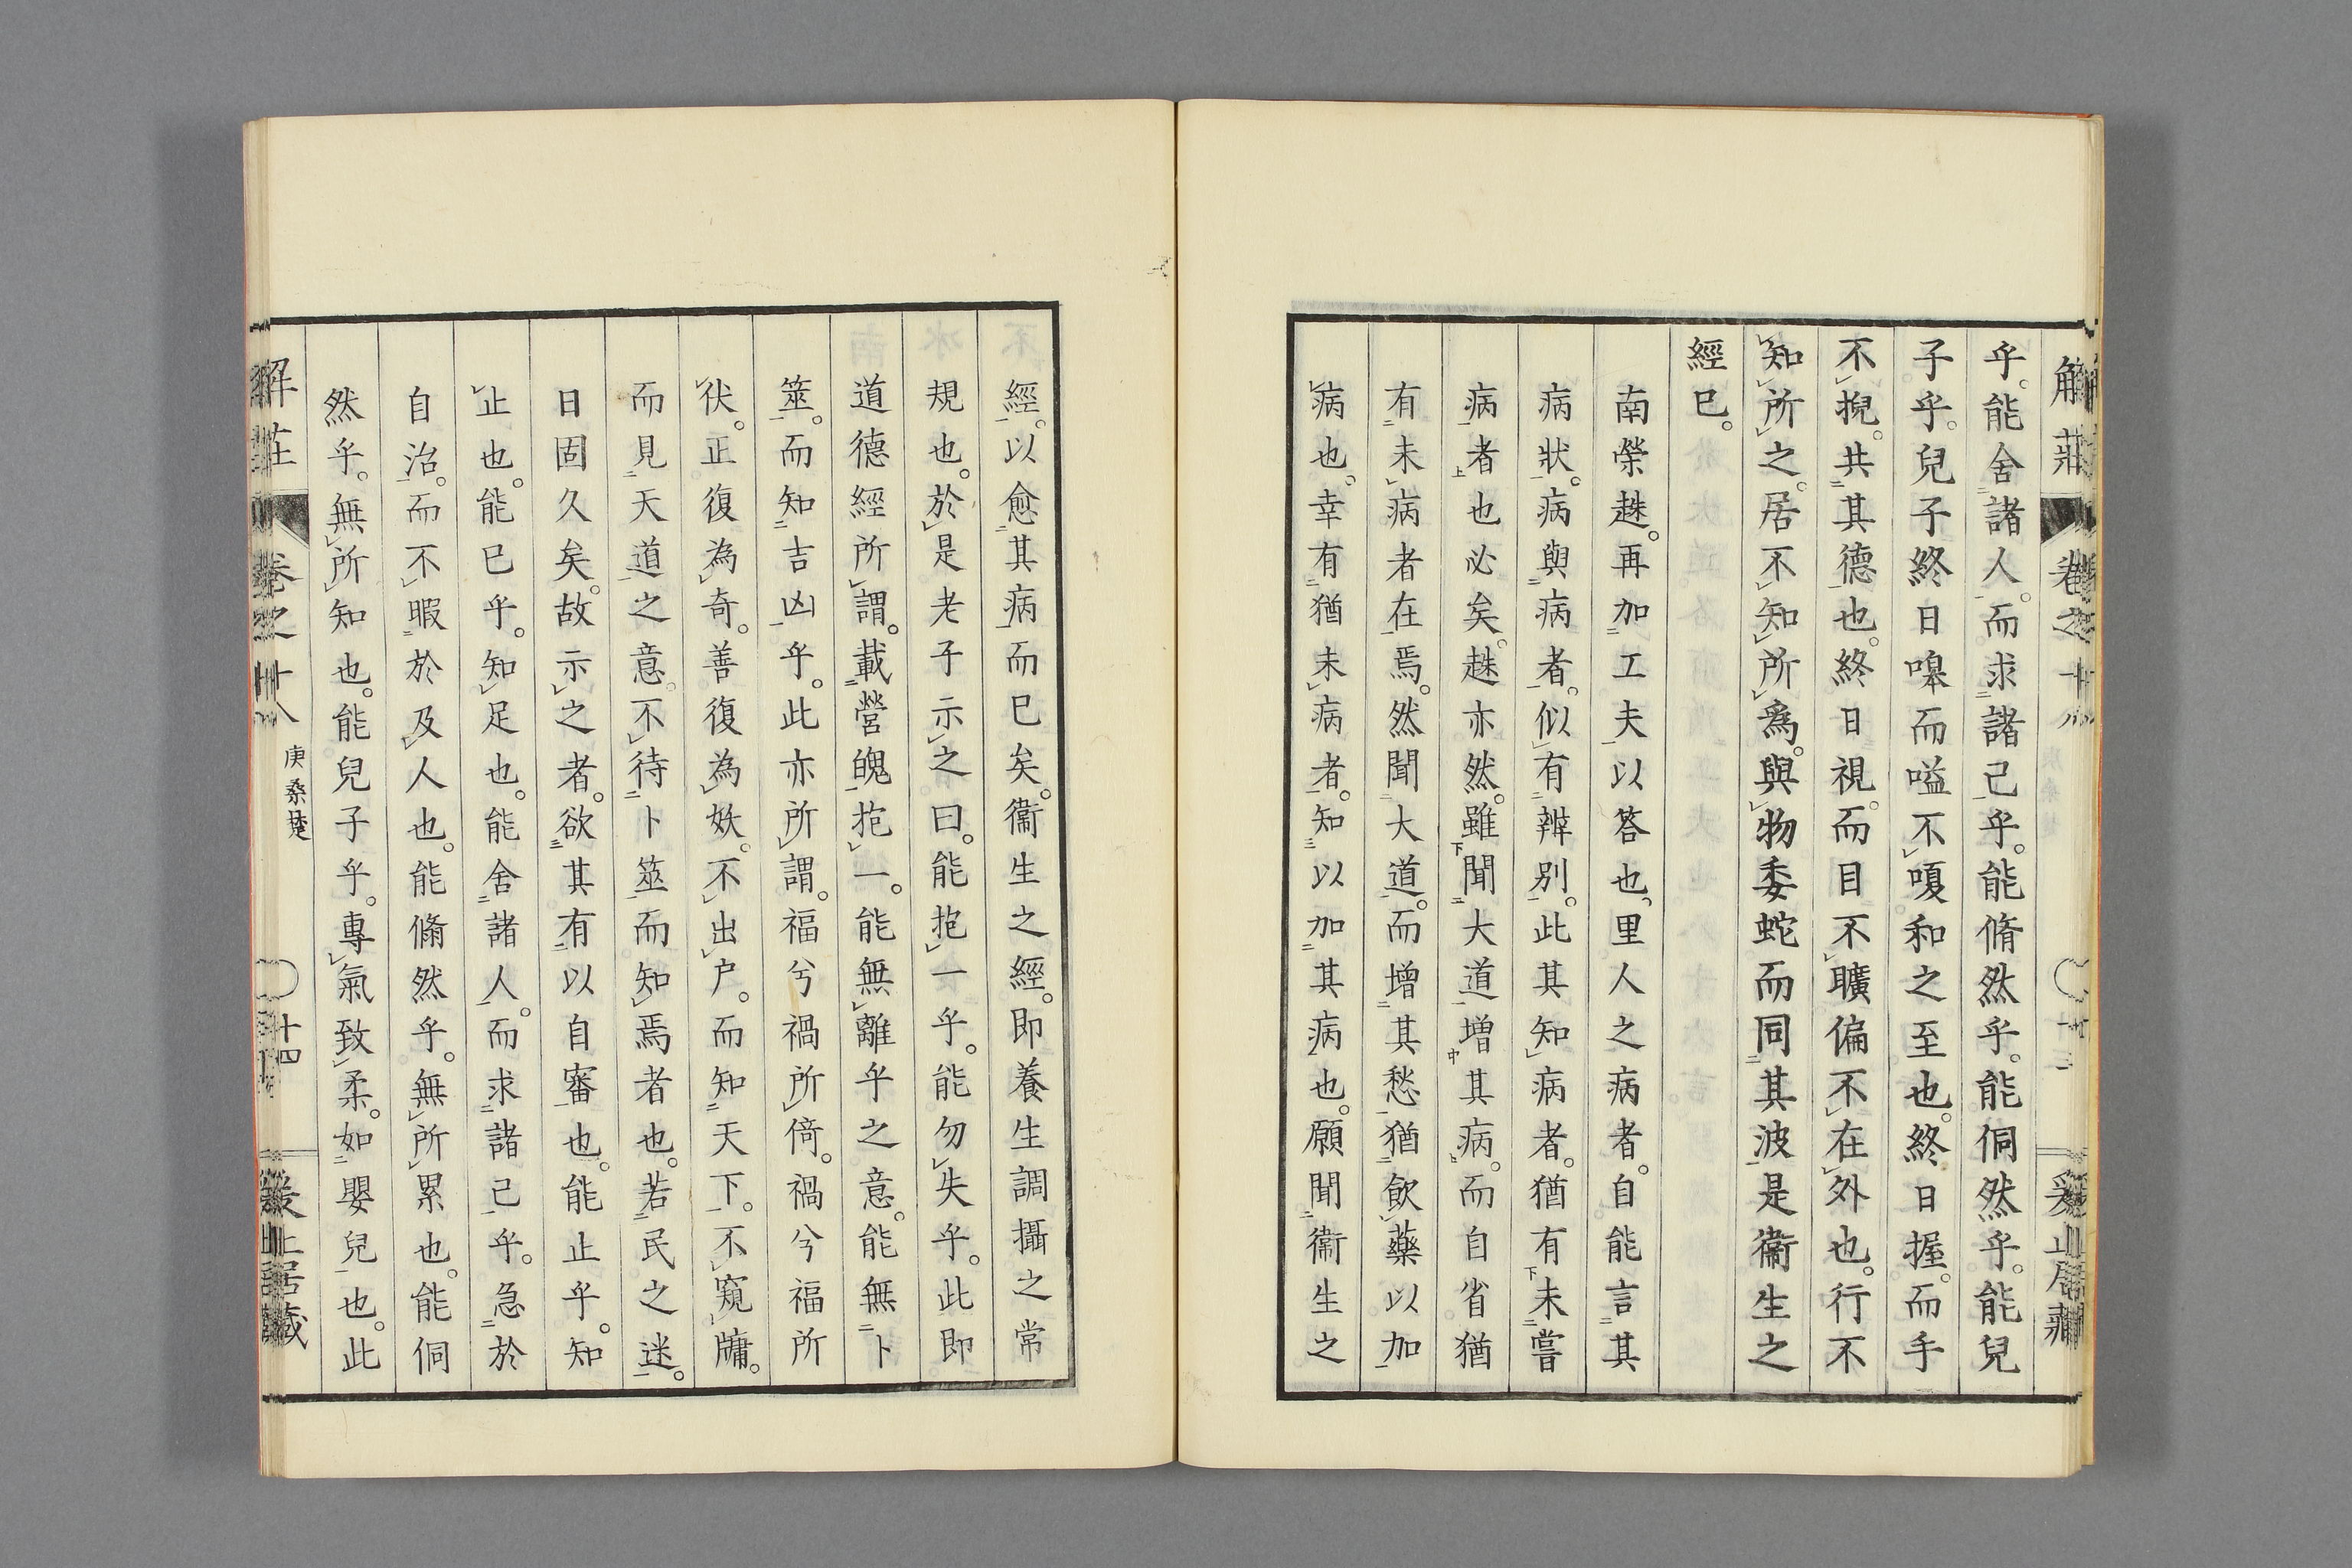 乎。能舍諸人。而求諸己乎。能脩然乎。能侗然乎。能兒
子乎。兒子終日嘷而嗌不嗄和之至也。終日握。而手
不掜。共其德也。終日視。而目不瞚偏不在外也。行不
知所之。居不知所爲。與物委蛇而同其波是衞生之
經已。
南榮趎。再加工夫以答也。里人之病者。自能言其
病狀。病與病者。似有辨別。此其知病者。猶有未嘗
病者也必矣。趎亦然。雖聞大道增其病。而自省猶
有未病者在焉。然聞大道。而增其愁猶飲藥以加
病也。幸有猶未病者。知以加其病也。願聞衞生之
經。以愈其病而已矣。衞生之經。即養生調攝之常
規也。於是老子示之曰。能抱一乎。能勿失乎。此即
道德經所謂。載營魄抱一。能無離乎之意。能無卜
筮。而知吉凶乎。此亦所謂。福兮禍所倚。禍兮福所
伏。正復為奇。善復為妖。不出户。而知天下。不窺牖。
而見天道之意。不待卜筮而知焉者也。若民之迷。
日固久矣。故示之者。欲其有以自審也。能止乎。知
止也。能已乎。知足也。能舍諸人。而求諸己乎。急於
自治。而不暇於及人也。能翛然乎。無所累也。能侗
然乎。無所知也。能兒子乎。專氣致柔。如嬰兒也。此
解莊
卷之十八
庚桑楚
十四